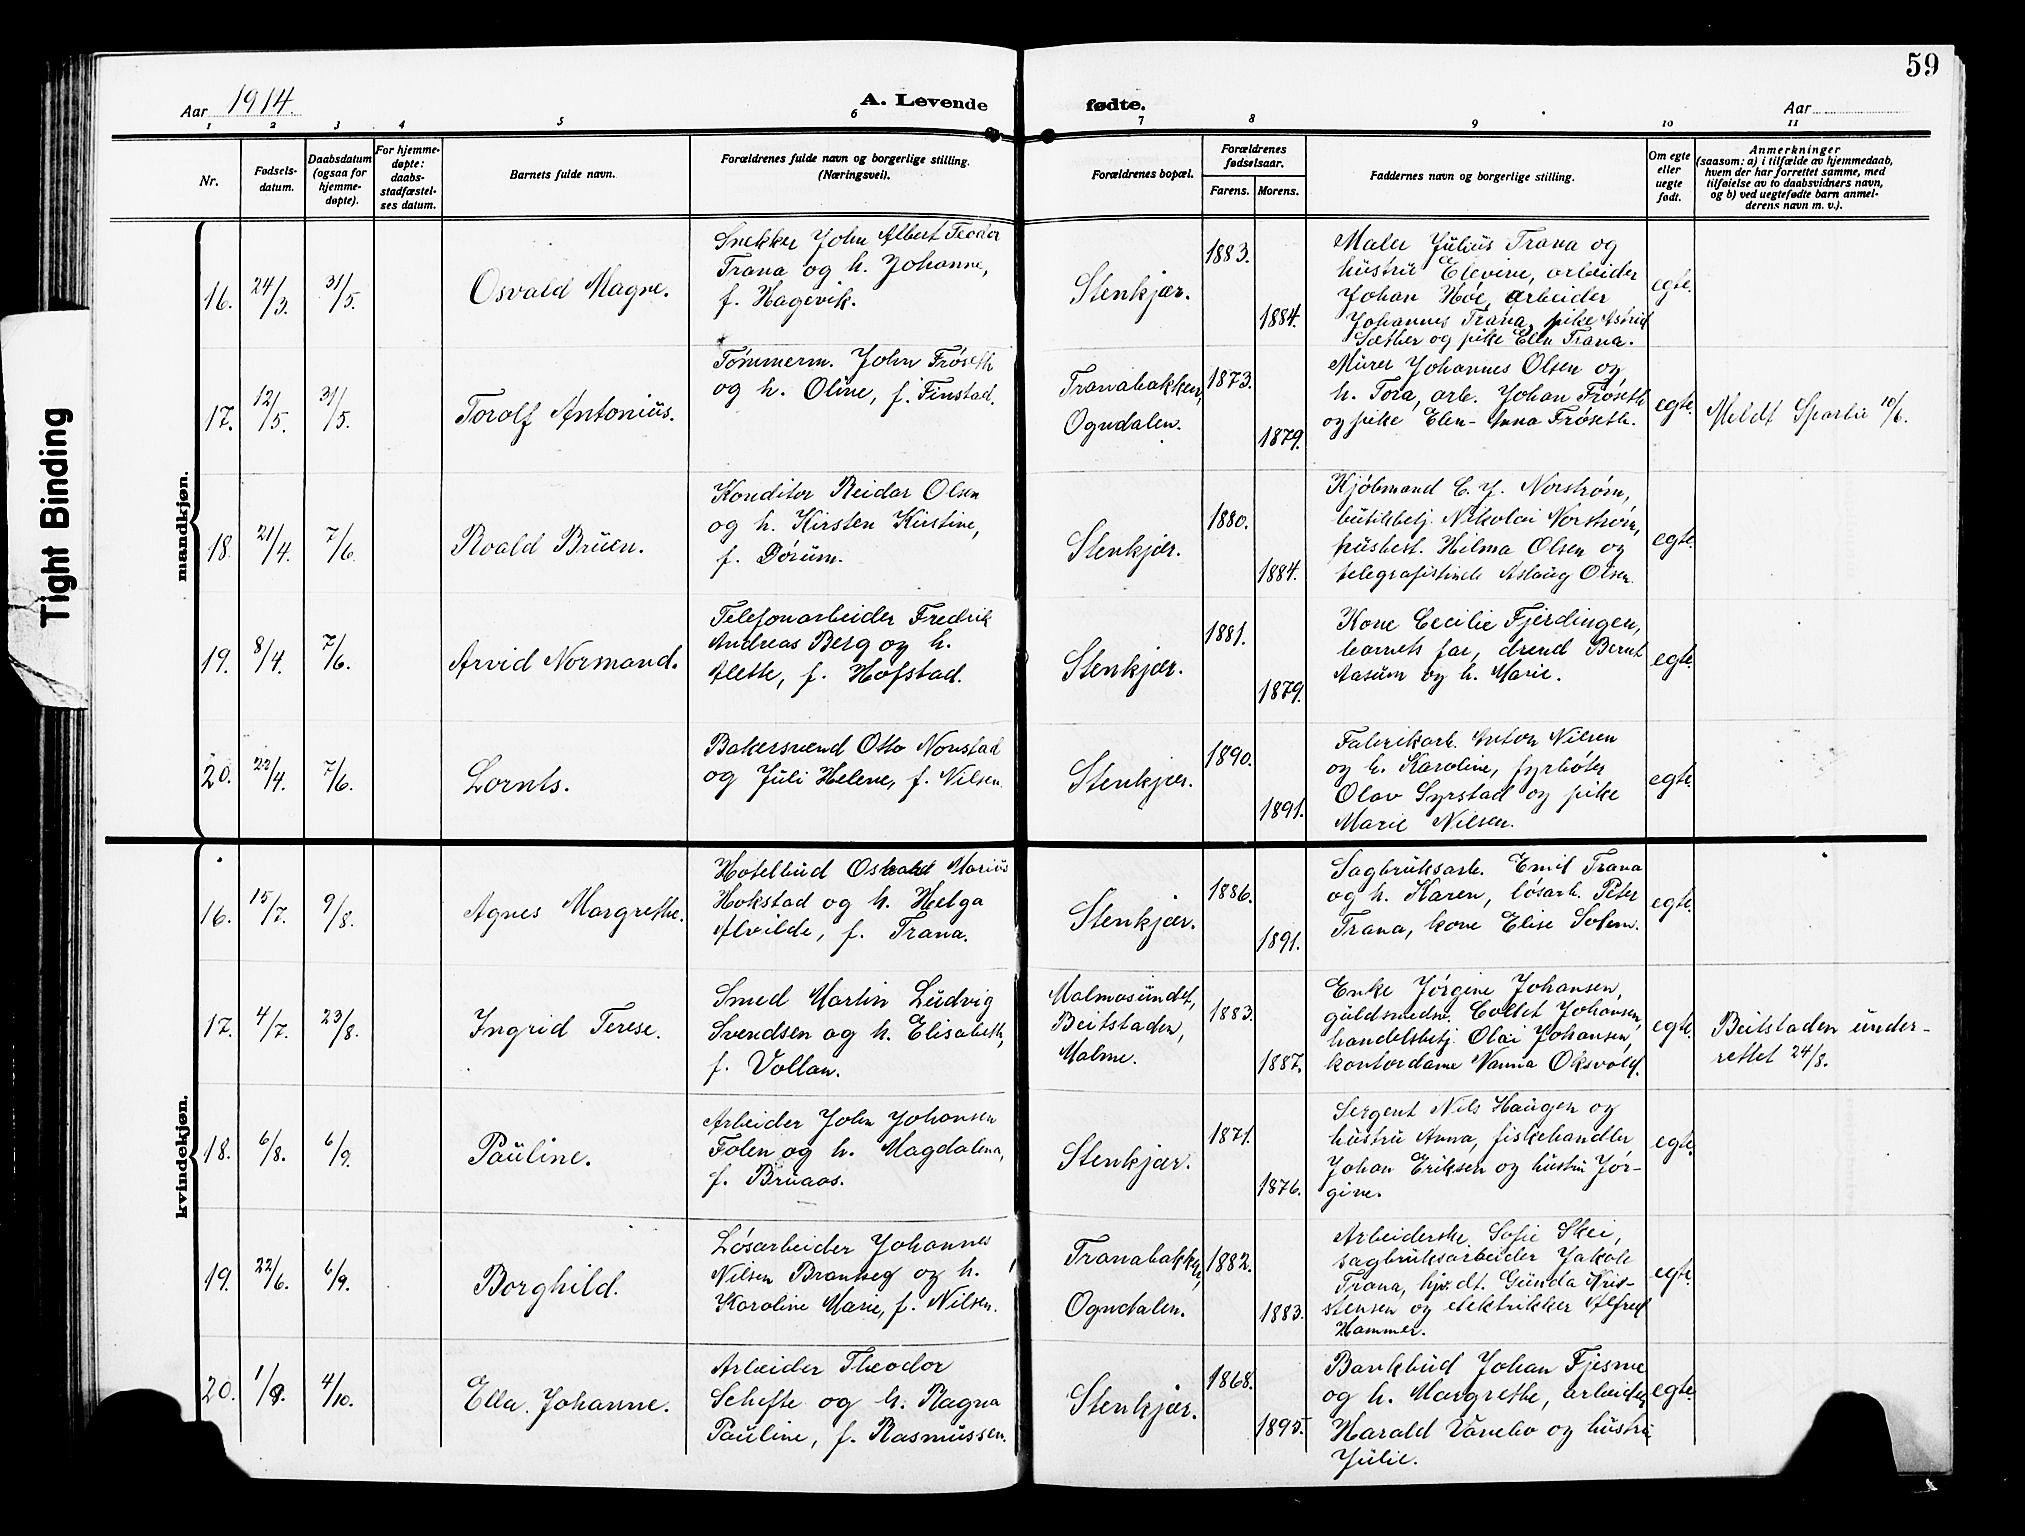 59
Aar 1914.
A. Levende fødte.
Aar
1 2 3 4 5 6 7 8 9 10 11
Nr.
Fødsels-
datum.
Daabsdatum
(ogsaa for
hjemme-
døpte).
For hjemme-
døpte:
daabs-
stadfæstel-
ses datum.
Barnets fulde navn.
Forældrenes fulde navn og borgerlige stilling.
(Næringsvei).
Forældrenes bopæl.
Forældrenes
fødselsaar.
Farens. Morens.
Faddernes navn og borgerlige stilling.
Om egte
eller
uegte
født.
Anmerkninger
(saasom: a) i tilfælde av hjemmedaab,
hvem der har forrettet samme, med
tilføielse av to daabsvidners navn,
og b) ved uegtefødte barn anmel-
derens navn m. v.).
Tight Binding
mandkjøn.
16. 24/3. 31/5. Osvald Magne.
Snekker John Albert Teodor
Trana og h. Johanne,
f. Hagevik.
Stenkjær.
1883.
1884.
Maler Julius Trana og
hustru Elevine, arbeider
Johan Hoe, arbeider
Johannes Trana, pike Astrid
Sæther og pike Elen Trana.
egte.
17. 12/5. 31/5. Torolf Antonius.
Tømmerm. John Frøseth
og h. Oline, f. Finstad.
Tranabakken,
Ogndalen.
1873.
1879.
Murer Johannes Olsen og
h. Tora, arb. Johan Frøseth
og pike Elen-Anna Frøseth.
egte.
Meldt Sparbu 10/6.
18. 21/4. 7/6. Roald Bruen.
Konditor Reidar Olsen
og h. Kirsten Kirstine,
f. Dørum.
Stenkjær.
1880.
1884.
Kjøbmand C. J. Norstrøm,
butikbetj. Nikolai Norstrøm,
husbest. Hilma Olsen og
telegrafistinde Aslaug Olsen.
egte.
19. 8/4. 7/6. Arvid Normand.
Telefonarbeider Fredrik
Andreas Berg og h.
Alette, f. Hofstad.
Stenkjær.
1881.
1879.
Kone Cecilie Fjerdingen,
barnets far, dreng Bernt
Aasum og h. Marie.
egte.
20. 22/4. 7/6. Lornts.
Bakersvend Otto Norstad
og Juli Helene, f. Nilsen.
Stenkjær.
1890.
1891.
Fabrikarb. Anton Nilsen
og h. Karoline, fyrbøter
Olav Syrstad og pike
Marie Nilsen.
egte.
kvindekjøn.
16. 15/7. 9/8. Agnes Margrethe.
Hotelbud Oskald Marius
Hokstad og h. Helga
Alvilde, f. Trana.
Stenkjær.
1886.
1891.
Sagbruksarb. Emil Trana
og h. Karen, løsarb. Peter
Trana, kone Elise Solem.
egte.
17. 4/7. 23/8. Ingrid Terese.
Smed Martin Ludvig
Svendsen og h. Elisabeth,
f. Vollan.
Malmosundet,
Beitstaden,
Malme.
1883.
1887.
Enke Jørgine Johansen,
guldsmedm. Collet Johansen,
handelsbetj. Olai Johansen,
kontordame Nanna Oksvold.
egte.
Beitstaden under-
rettet 24/8.
18. 6/8. 6/9. Pauline.
Arbeider John Johansen
Folen og h. Magdalena,
f. Bruaas.
Stenkjær.
1871.
1876.
Sergent Nils Haugen og
hustru Anna, fiskehandler
Johan Eriksen og hustru Jør-
gine.
egte.
19. 22/6. 6/9. Borghild.
Løsarbeider Johannes
Nilsen Brandseg og h.
Karoline Marie, f. Nilsen.
Tranabakken,
Ogndalen.
1882.
1883.
Arbeiderske Sofie Skei,
sagbruksarbeider Jakob
Trana, hjv. dt. Gunda Kris-
stensen og elektrikker Alfred
Hammer.
egte.
20. 1/9. 4/10. Ella Johanne.
Arbeider Theodor
Schefte og h. Ragna
Pauline, f. Rasmussen.
Stenkjær.
1868.
1895.
Bankbud Johan Fjesme
og h. Margrethe, arbeider
Harald Vanebo og hustru
Julie.
egte.